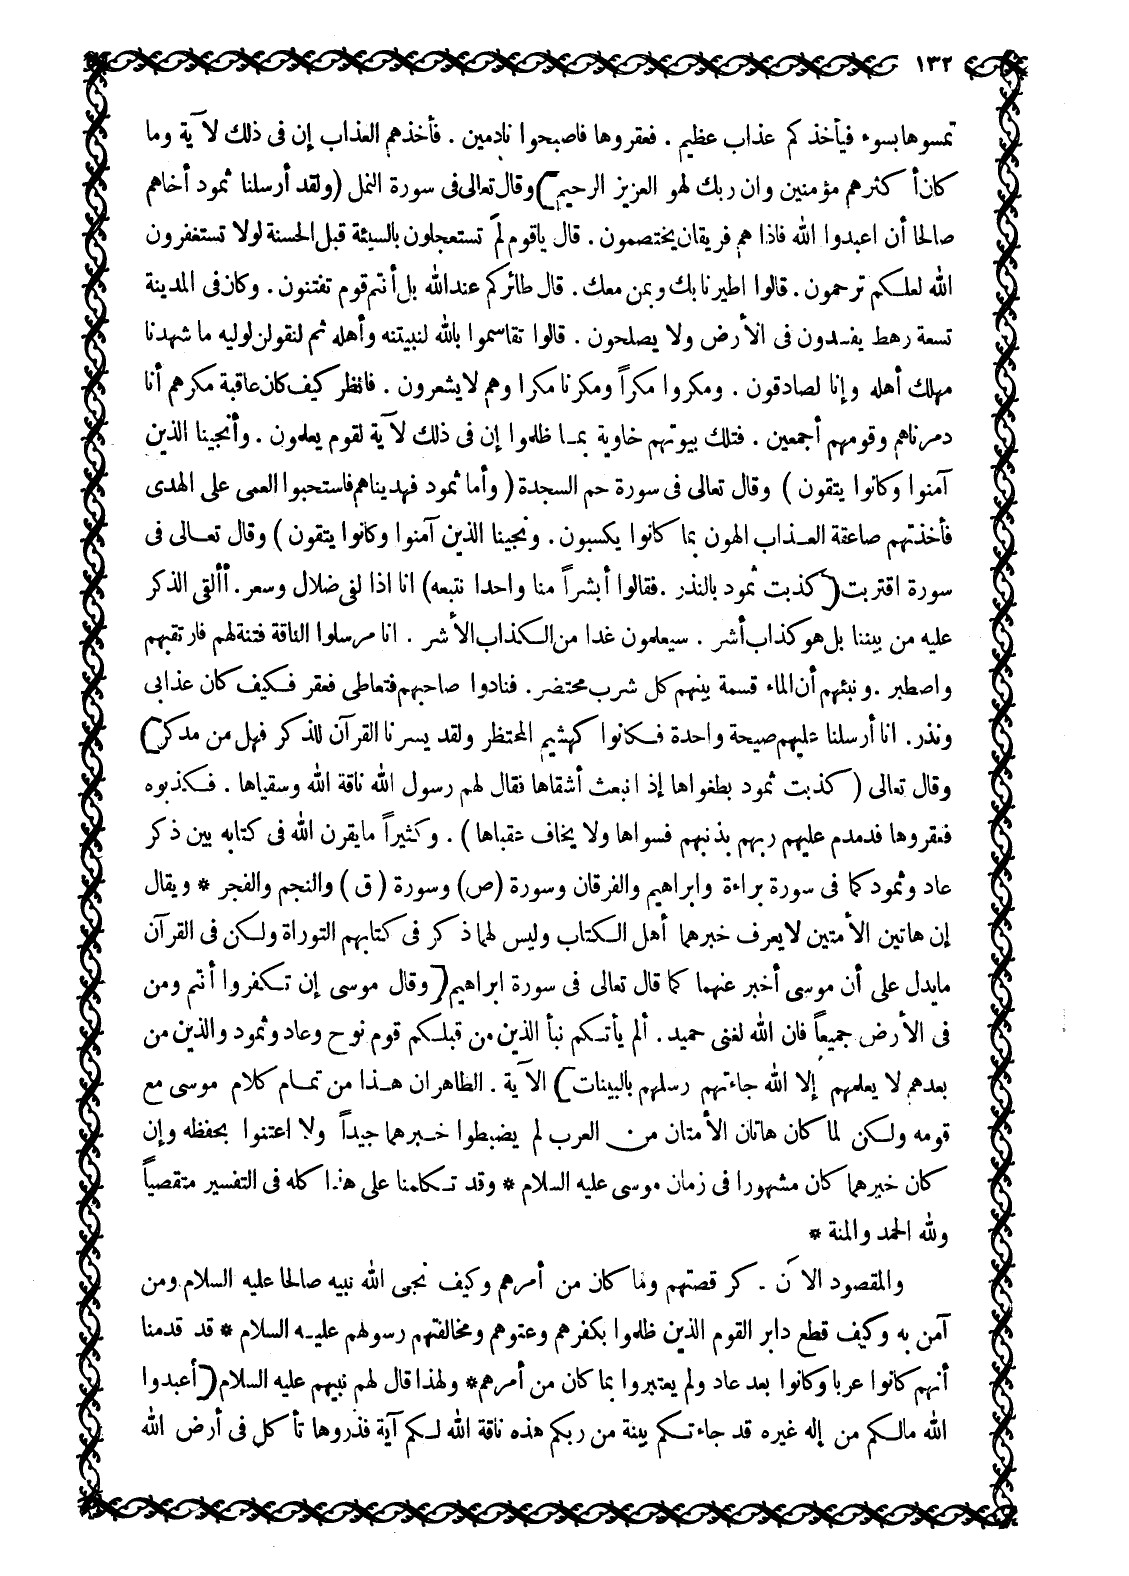 ١٣٢
تمسوها بسوء فيأخذكم عذاب عظيم . فعقروها فاصبحوا نادمين . فأخذهم العذاب إن فى ذلك لآية وما
كان أكثرهم مؤمنين وان ربك لهو العزيز الرحيم) وقال تعالى فى سورة النمل (ولقد أرسلنا ثمود أخاهم
صالحا أن اعبدوا الله فاذا هم فريقان يختصمون . قال ياقوم لمَ تستعجلون بالسيئة قبل الحسنة لولا تستغفرون
الله لعلكم ترحمون . قالوا اطيرنا بك وبمن معك . قال طائركم عند الله بل أنتم قوم تفتنون . وكان فى المدينة
تسعة رهط يفسدون فى الأرض ولا يصلحون . قالوا تقاسموا بالله لنبيتنه وأهله ثم لنقولن لوليه ما شهدنا
مهلك أهله وإنا لصادقون . ومكروا مكراً ومكرنا مكرا وهم لا يشعرون . فانظر كيف كان عاقبة مكرهم أنا
دمرناهم وقومهم أجمعين . فتلك بيوتهم خاوية بما ظلموا إن فى ذلك لآية لقوم يعلمون . وأنجينا الذين
آمنوا وكانوا يتقون ) وقال تعالى فى سورة حم السجدة ( وأما ثمود فهديناهم فاستحبوا العمى على الهدى
فأخذتهم صاعقة العذاب الهون بما كانوا يكسبون . ونجينا الذين آمنوا وكانوا يتقون ) وقال تعالى فى
سورة اقتربت (كذبت ثمود بالنذر . فقالوا أبشراً منا واحدا نتبعه) انا اذا لفى ضلال وسعر . أألقى الذكر
عليه من بيننا بل هو كذاب أشر . سيعلمون غدا من الكذاب الأشر . انا مرسلوا الناقة فتنة لهم فارتقبهم
واصطبر . ونبئهم أن الماء قسمة بينهم كل شرب محتضر . فنادوا صاحبهم فتعاطى فعقر فكيف كان عذابى
ونذر . انا أرسلنا عليهم صيحة واحدة فكانوا كهشيم المحتظر ولقد يسرنا القرآن للذكر فهل من مدكر)
وقال تعالى ( كذبت ثمود بطغواها إذ انبعث أشقاها فقال لهم رسول الله ناقة الله وسقياها . فكذبوه
فعقروها فدمدم عليهم ربهم بذنبهم فسواها ولا يخاف عقباها ) . وكثيراً ما يقرن الله فى كتابه بين ذكر
عاد وثمود كما فى سورة براءة وابراهيم والفرقان وسورة (ص) وسورة ( ق ) والنجم والفجر * ويقال
إن هاتين الأمتين لا يعرف خبرهما أهل الكتاب وليس لهما ذكر فى كتابهم التوراة ولكن فى القرآن
مايدل على أن موسى أخبر عنهما كما قال تعالى فى سورة ابراهيم (وقال موسى إن تكفروا أنتم ومن
فى الأرض جميعاً فان الله لغنى حميد . ألم يأتكم نبأ الذين من قبلكم قوم نوح وعاد وثمود والذين من
بعدهم لا يعلمهم إلا الله جاءتهم رسلهم بالبينات) الآية . الظاهر ان هذا من تمام كلام موسى مع
قومه ولكن لما كان هاتان الأمتان من العرب لم يضبطوا خبرهما جيداً ولا اعتنوا بحفظه وإن
كان خبرهما كان مشهورا فى زمان موسى عليه السلام * وقد تكلمنا على هذا كله فى التفسير متقصياً
ولله الحمد والمنة *
والمقصود الآن ـكر قصتهم وما كان من أمرهم وكيف نجى الله نبيه صالحا عليه السلام ومن
آمن به وكيف قطع دابر القوم الذين ظلموا بكفرهم وعتوهم ومخالفتهم رسولهم عليه السلام * قد قدمنا
أنهم كانوا عربا وكانوا بعد عاد ولم يعتبروا بما كان من أمرهم * ولهذا قال لهم نبيهم عليه السلام (أعبدوا
الله مالكم من إله غيره قد جاءتكم بينة من ربكم هذه ناقة الله لكم آية فذروها تأكل فى أرض الله